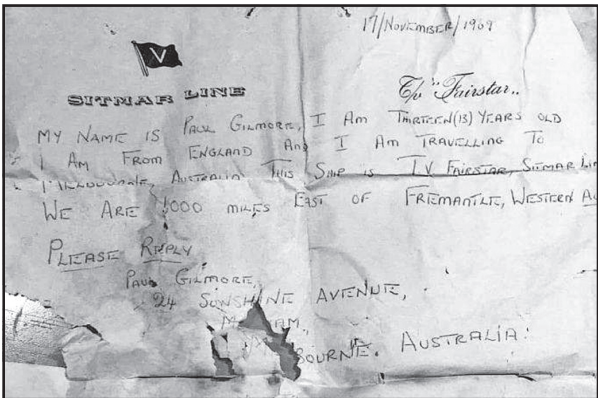 17/NOVEMBER/1969
V
SITMAR LINE
T/V "Fairstar"..
MY NAME IS PAUL GILMORE, I AM THIRTEEN(13) YEARS OLD
I AM FROM ENGLAND AND I AM TRAVELLING TO
MELBOURNE, AUSTRALIA THIS SHIP IS TV FAIRSTAR, SITMAR LIN
WE ARE 1000 MILES EAST OF FREMANTLE, WESTERN AU
PLEASE REPLY
PAUL GILMORE,
24 SUNSHINE AVENUE,
M AM,
BOURNE. AUSTRALIA.